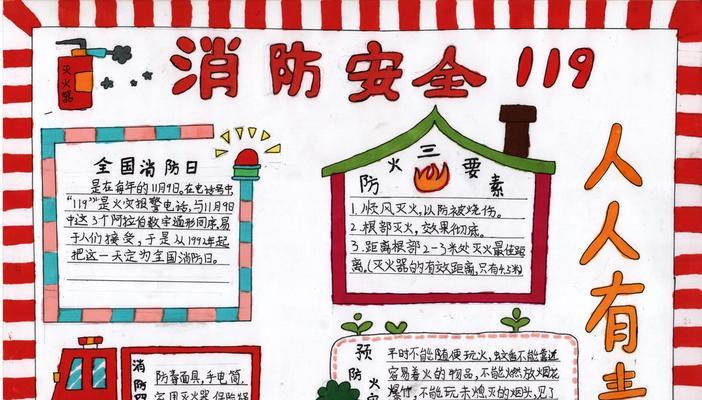 消防安全 119
灭火器
全国消防日
是在每年的11月9日,在电话号中
"119"是火灾报警电话,与11月9日
中这3个阿拉伯数字通形同序,易
于人们接受,于是从1992年起
把这一天定为全国消防日。
防火三要素
1.顺风灭火,以防被烧伤。
2.根部灭火,效果彻底。
3.距离根部2-3米处灭火最佳距
离,(灭火器的有效距离,只有4.5米
人人有
消防四
防毒面具,手电筒,
预防火灾
平时不能随便玩火,蚊香不能靠近
容易着火的物品,不能燃放烟花
爆竹,不能玩未熄灭的烟头,见了